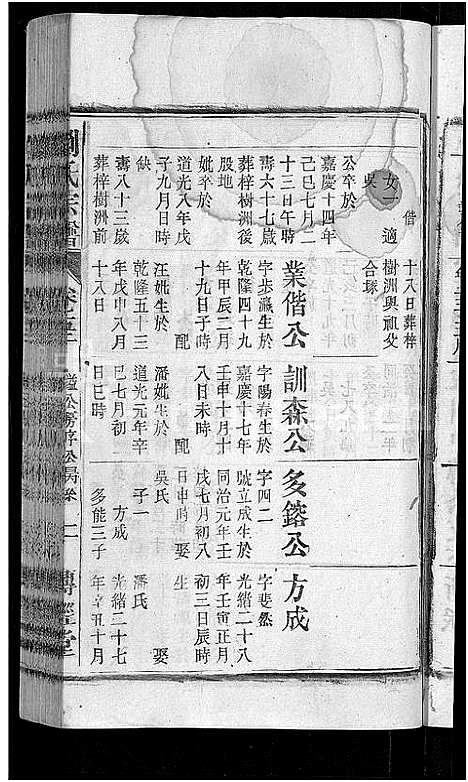 女一適
吳
公卒於
嘉慶十四年
己巳七月二
十三日午時
壽六十七歲
葬梓樹洲後
股地
妣卒於
道光八年戊
子九月日時
缺
壽八十三歲
葬梓樹洲前
偕
十八日葬梓
樹洲與祖父
合塚
業偕公
字步瀛生於
乾隆四十九
年甲辰二月
十九日子時
配
汪妣生於
乾隆五十三
年戊申八月
十八日
訓森公
字陽春生於
嘉慶十七年
壬申十月十
八日未時
配
潘妣生於
道光元年辛
巳七月初一
日巳時
多鎔公
字四二
號立成生於
同治元年壬
戌七月初八
日申時 娶
吳氏
子一
方成
多能三子
方成
字斐然
光緒二十八
年壬寅正月
初三日辰時
生
娶
潘氏
光緒二十七
年辛丑十月
劉氏宗譜
卷五
傳經堂